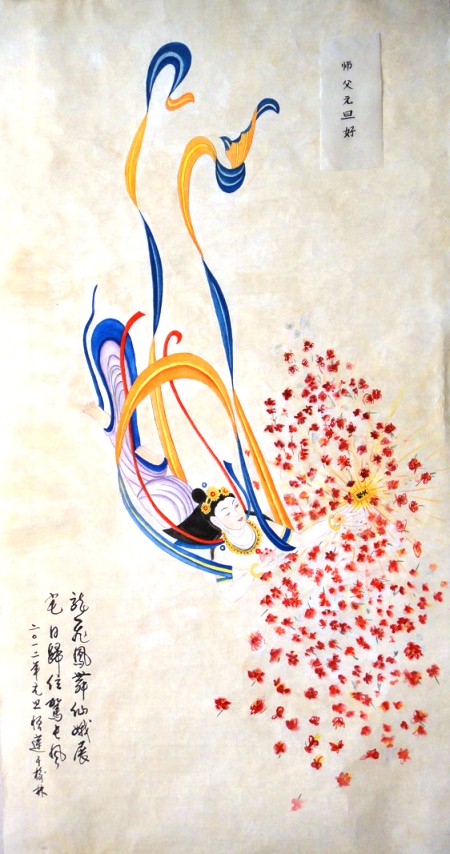 师父元旦好
龍飛鳳舞仙娥展
日歸位駕长风
二〇一二年元旦 蓮于 林